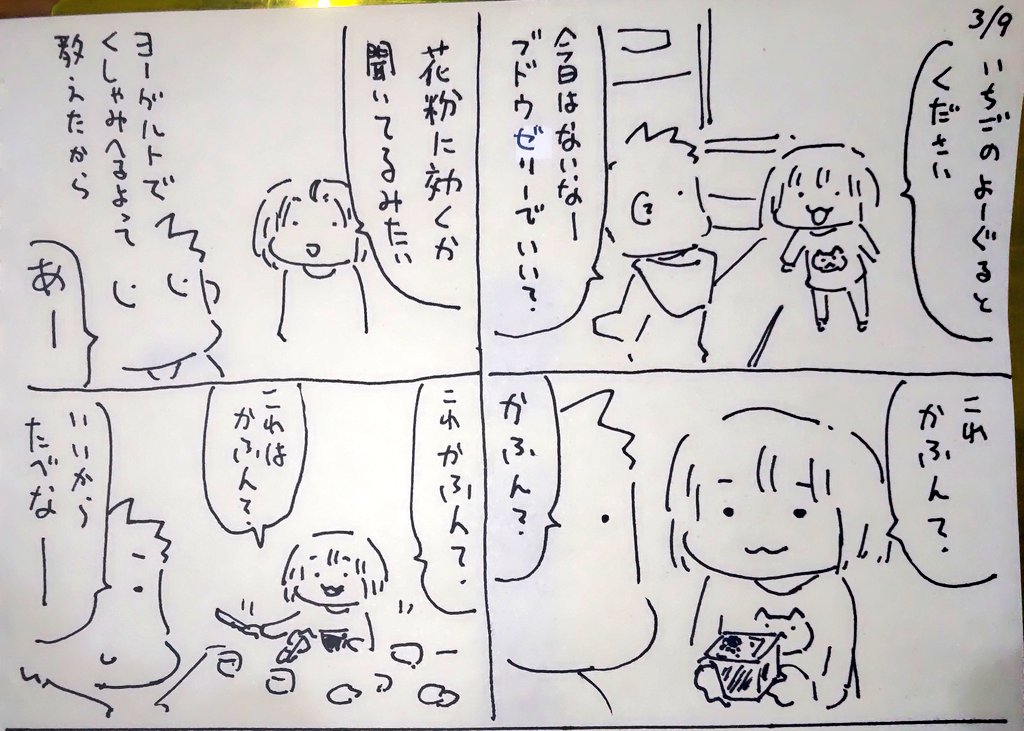 3/9
いちごのよーぐると
ください
今日はないなー
ブドウゼリーでいい?
これ
かふんて?
かふんて?
花粉に効くか
聞いてるみたい
ヨーグルトで
くしゃみへるよって
教えたから
あー
これかふんて?
これは
かふんて?
いいから
たべなー